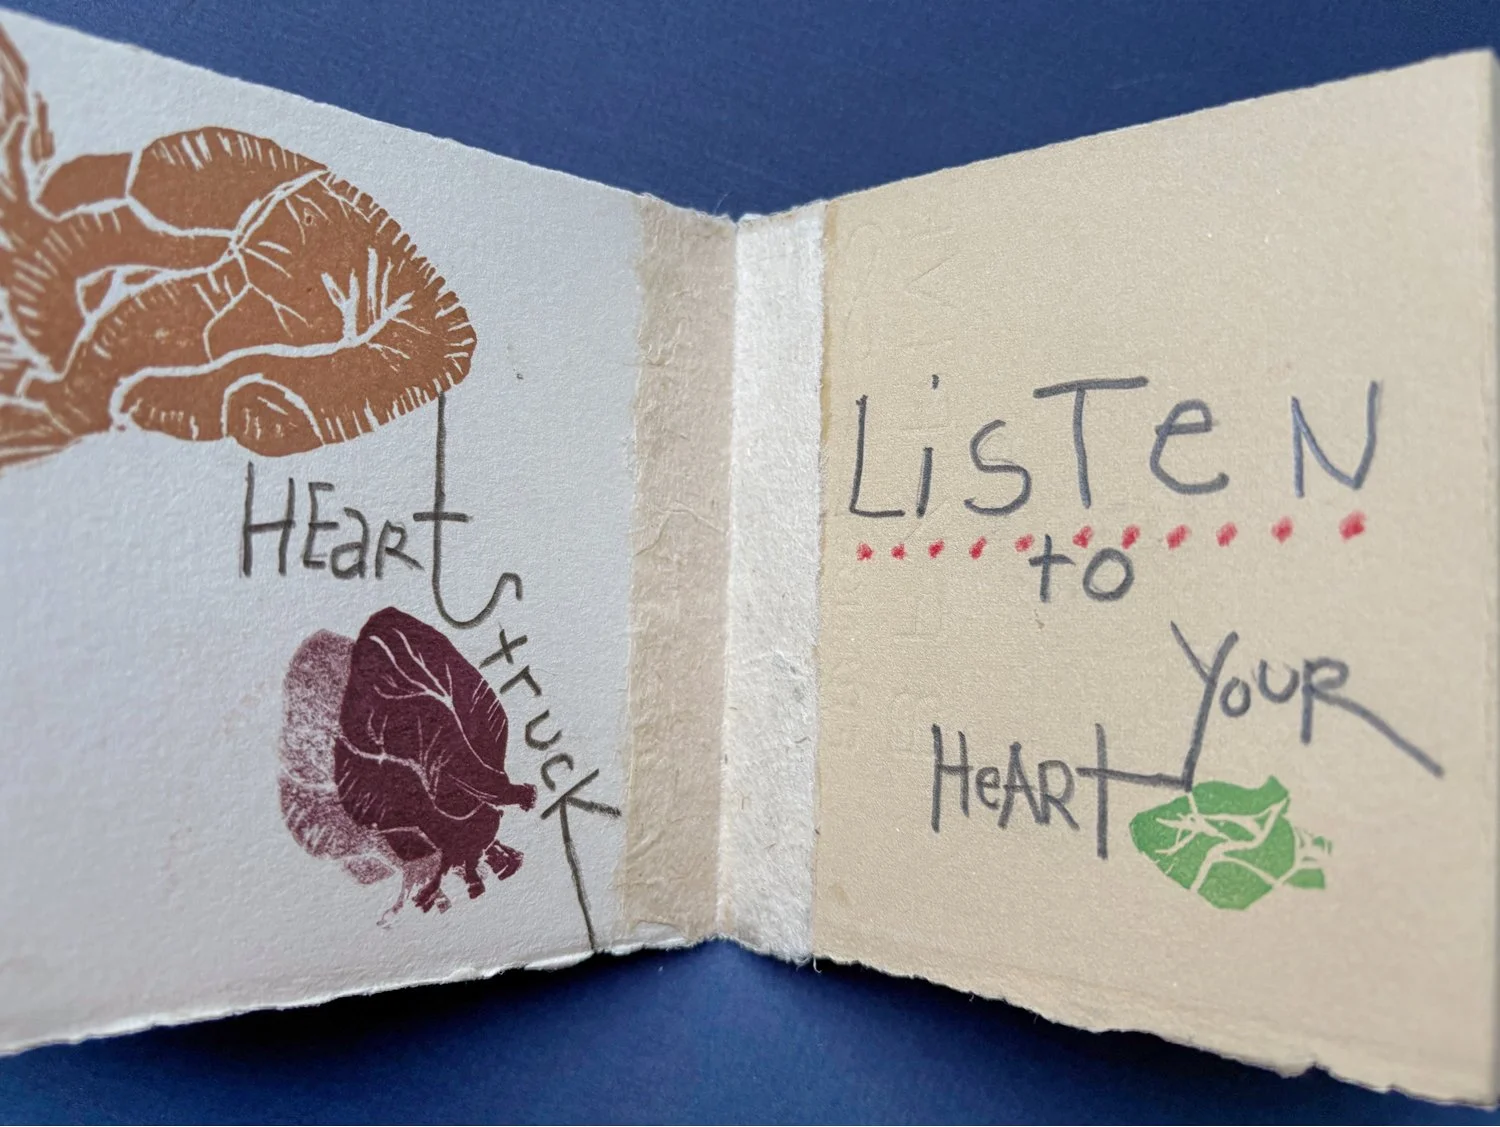 HEart
struck
LisTeN
to
YOUR
HeARt